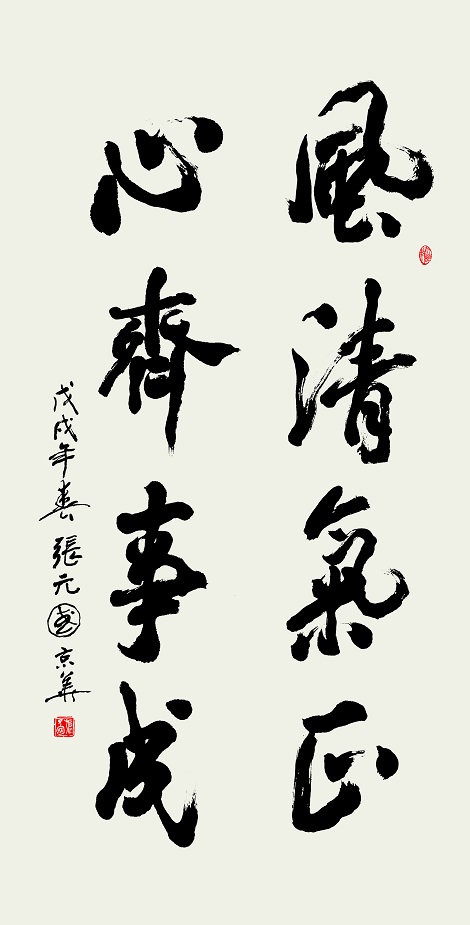 風清氣正
心齊事成
戊戌年春張元國京華